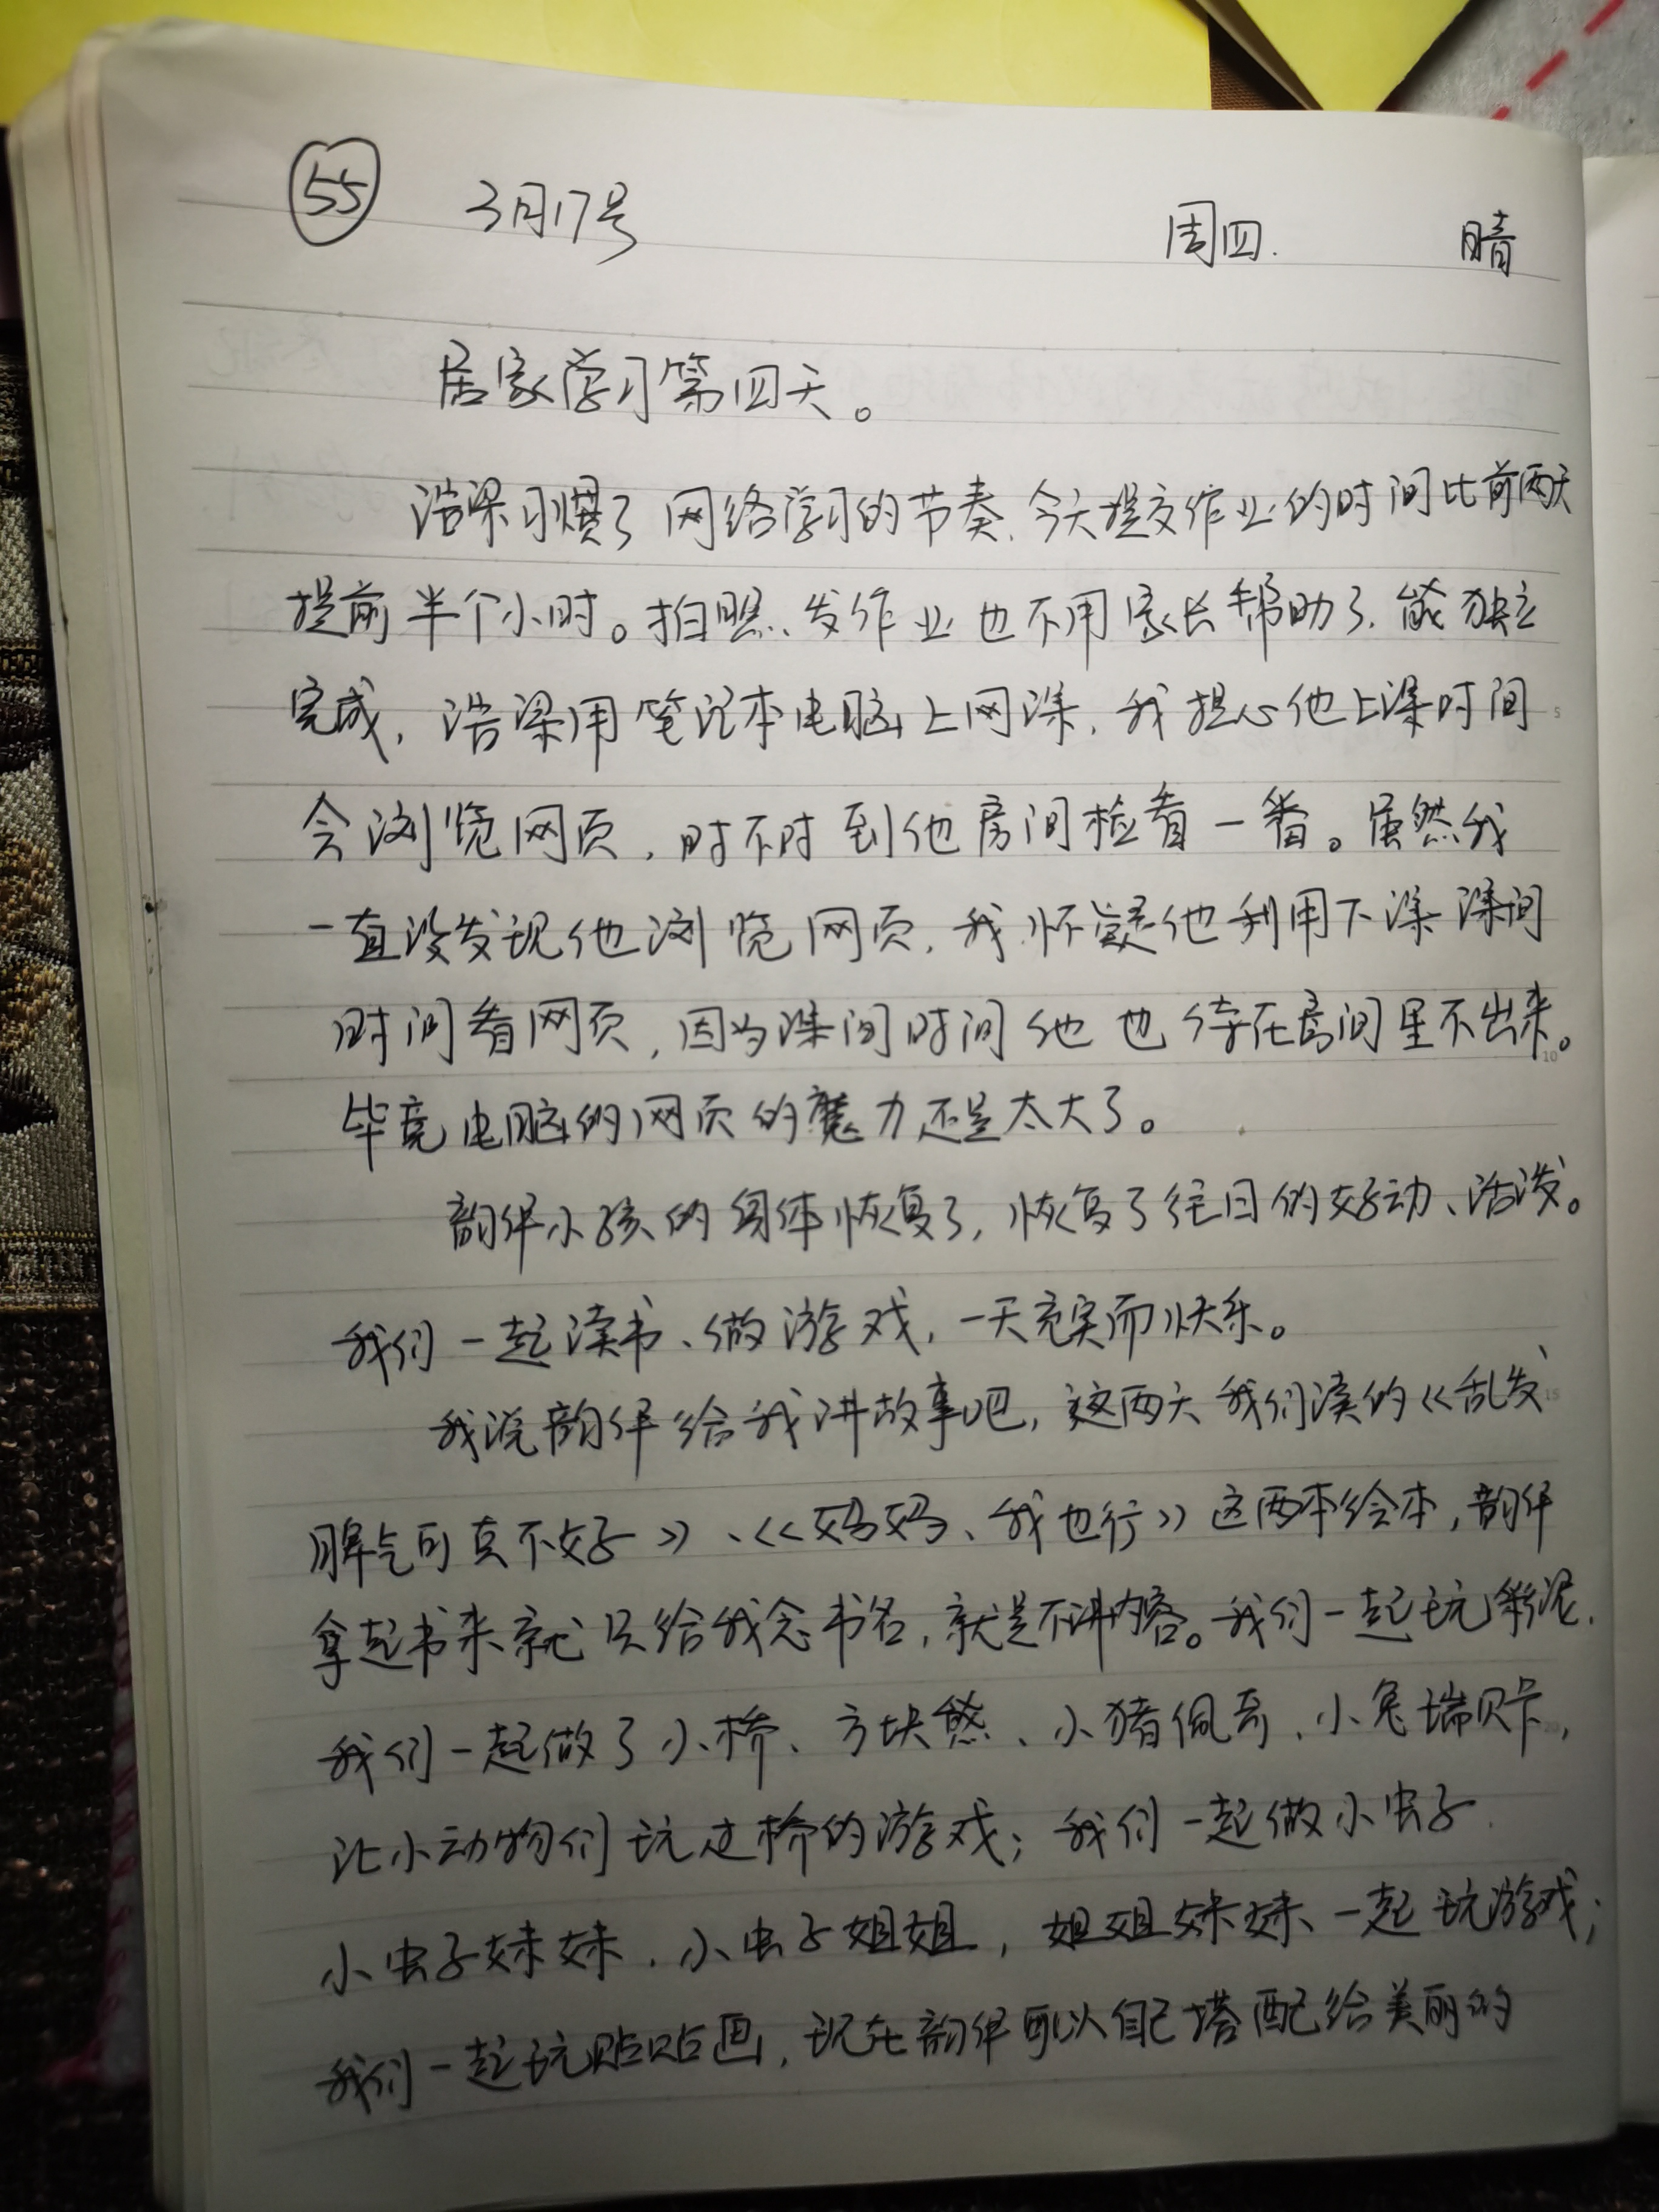 55 3月17号 周四. 晴
居家学习第四天。
浩梁习惯了网络学习的节奏,今天提交作业的时间比前两天
提前半个小时。拍照、发作业也不用家长帮助了,能独立
完成,浩梁用笔记本电脑上网课,我担心他上课时间
会浏览网页,时不时到他房间检看一番。虽然我
一直没发现他浏览网页,我怀疑他利用下课课间
时间看网页,因为课间时间他也待在房间里不出来。
毕竟电脑的网页的魔力还是太大了。
韵伊小孩的身体恢复了,恢复了往日的好动、活泼。
我们一起读书、做游戏,一天充实而快乐。
我说韵伊给我讲故事吧,这两天我们读的《乱发
脾气可真不好》、《妈妈、我也行》这两本绘本,韵伊
拿起书来就只给我念书名,就是不讲内容。我们一起玩彩泥,
我们一起做了小桥、方块熊、小猪佩奇、小兔瑞贝卡,
让小动物们玩过桥的游戏;我们一起做小虫子.
小虫子妹妹、小虫子姐姐,姐姐妹妹、一起玩游戏;
我们一起玩贴贴画,现在韵伊可以自己搭配给美丽的